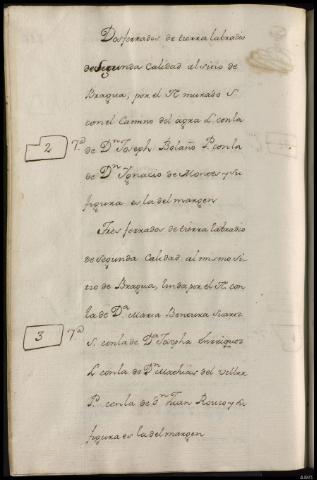 Dos ferrados de tierra labradio
de segunda Calidad al sitio de
Bragua, por el N. murado S.
con el Camino del agra L. con la
2 7.a de Dn. Joseph Bolaño P. con la
de Dn. Ignacio de Montes y su
figura es la del margen
Tres ferrados de tierra labradio
de segunda Calidad al mismo si
tio de Bragua, linda por el N. con
la de Da. Maria Benura Suarez
3 7.a S. con la de Da. Josepha Enrriquez
L. con la de Dn. Machias del Villar
P. con la de Dn. Juan Rouco y su
figura es la del margen